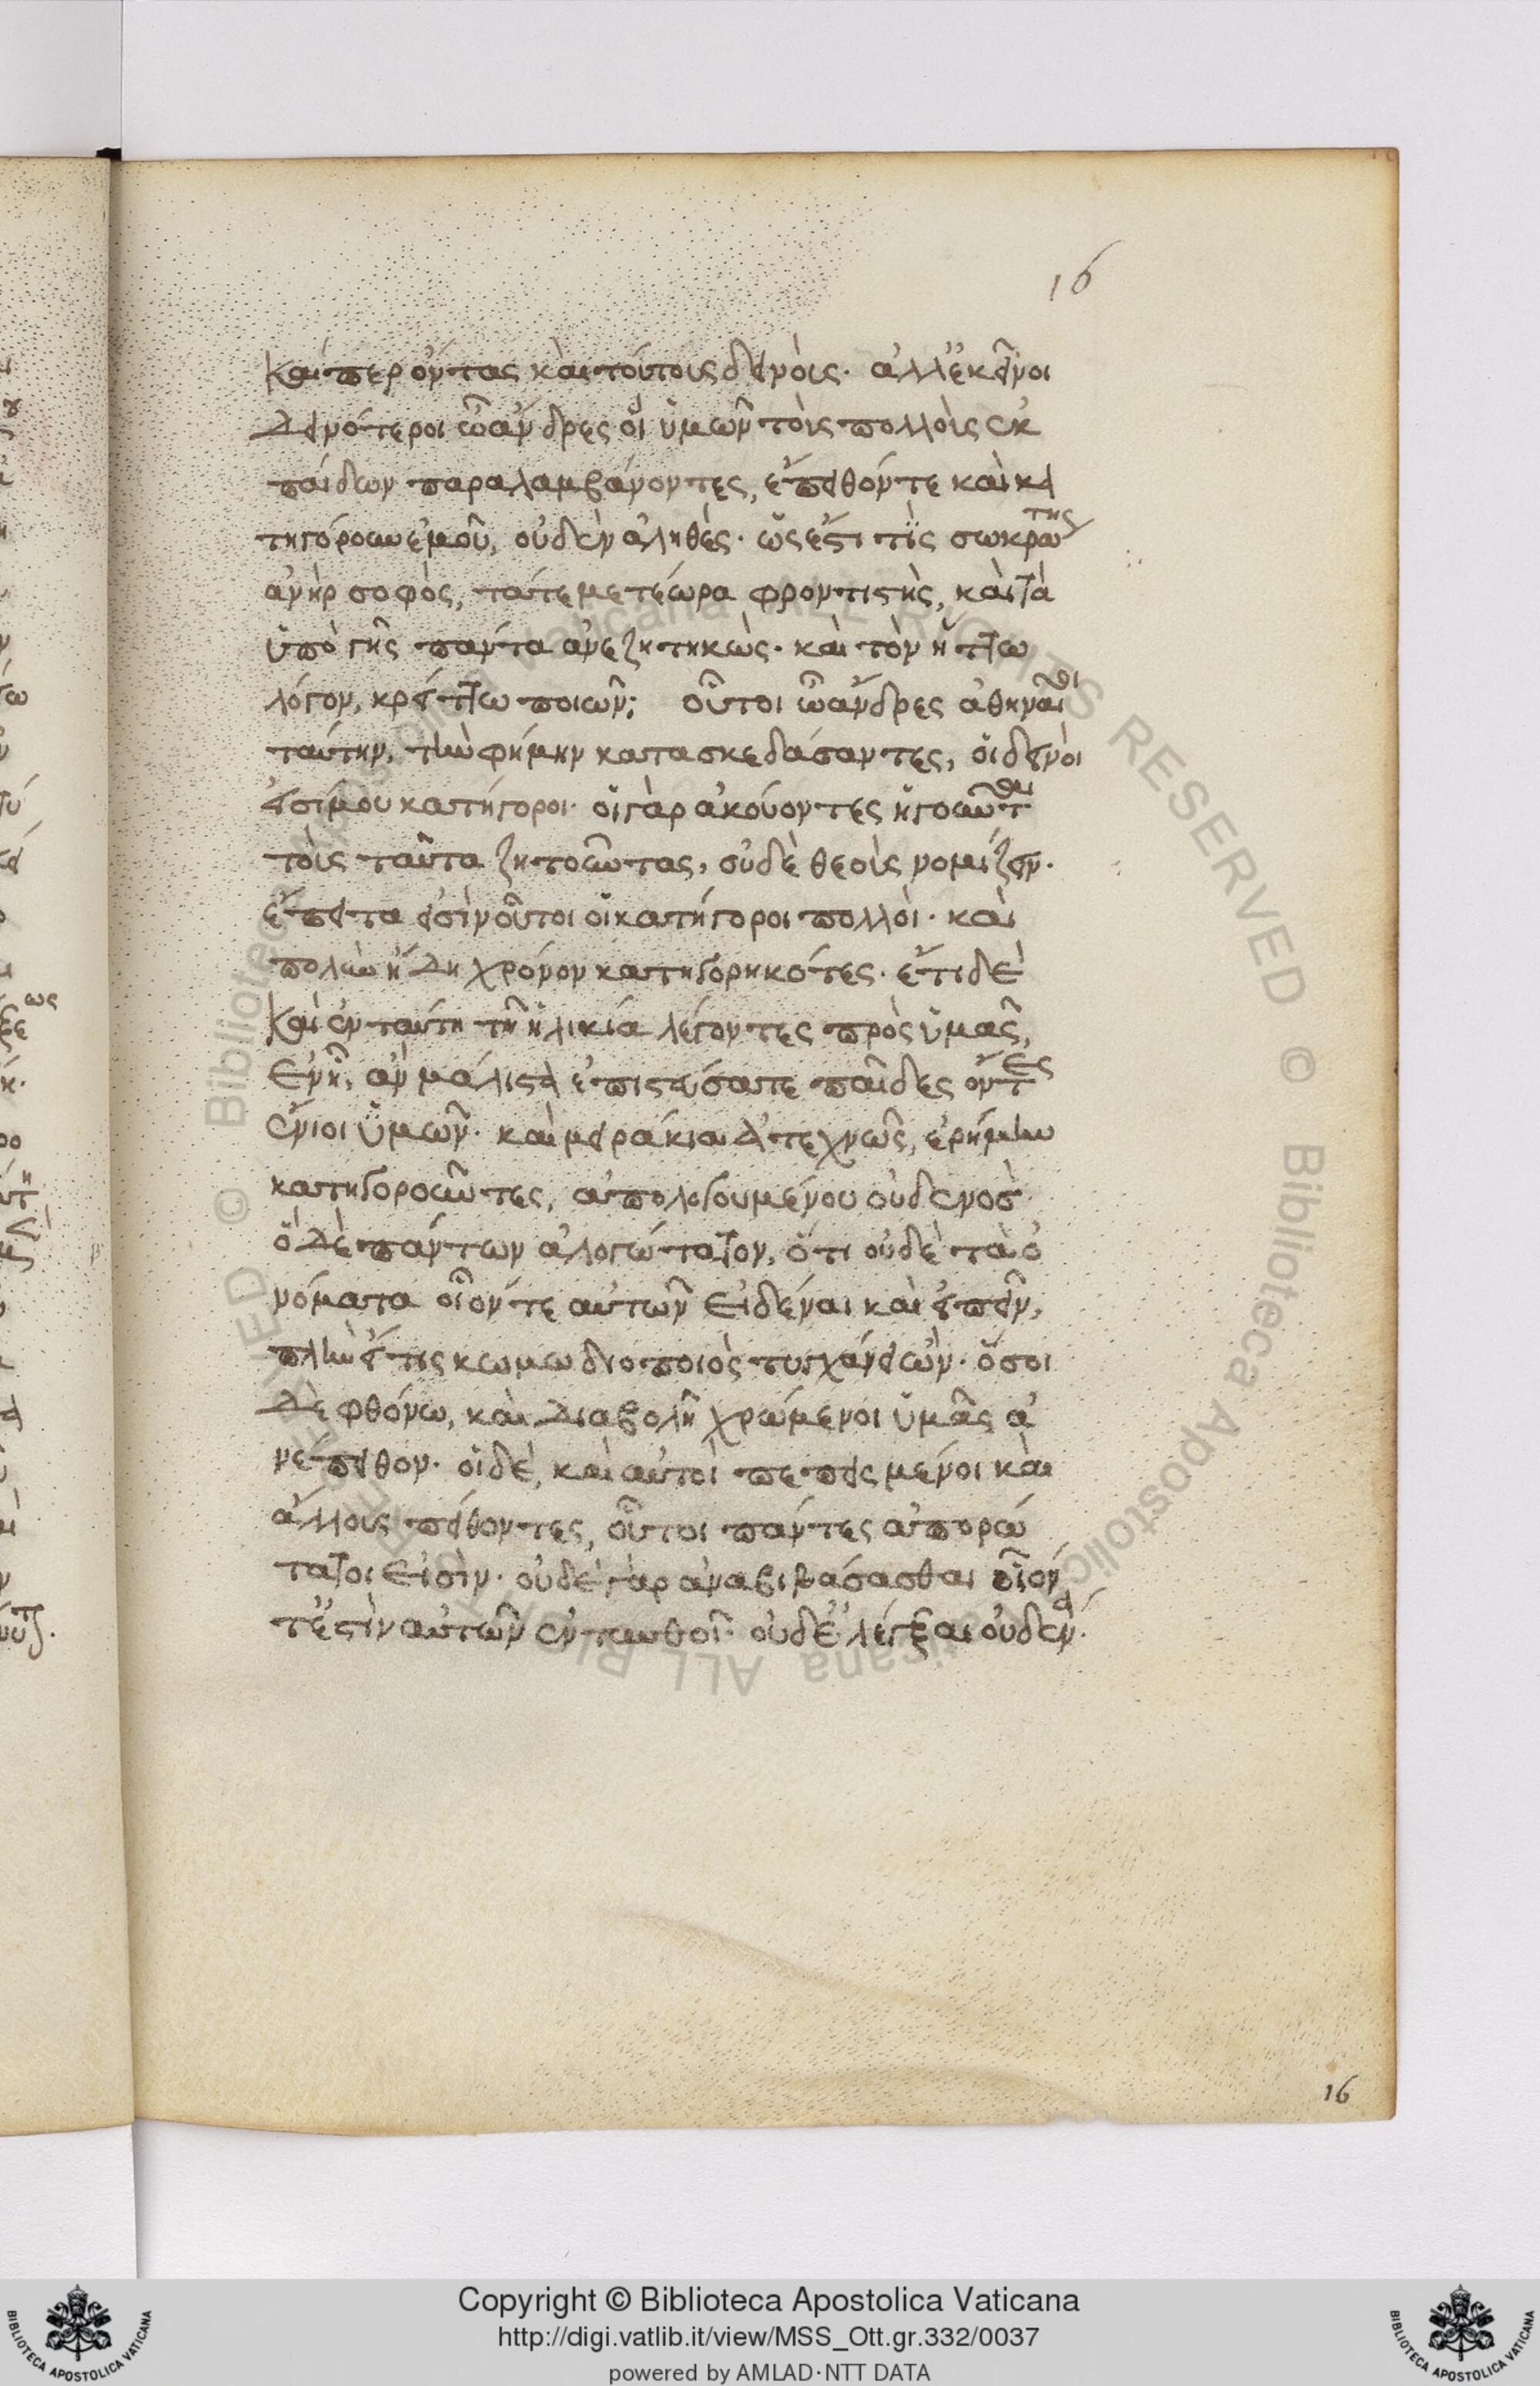 16
καίπερ ὄντας καὶ τούτους δεινούς· ἀλλ' ἐκεῖνοι
δεινότεροι ὦ ἄνδρες οἳ ὑμῶν τοὺς πολλοὺς ἐκ
παίδων παραλαμβάνοντες, ἔπειθόν τε καὶ κα
τηγόρουν ἐμοῦ, οὐδὲν ἀληθές· ὡς ἔστι τις σωκράτης
ἀνὴρ σοφὸς, τά τε μετέωρα φροντιστὴς, καὶ τὰ
ὑπὸ γῆς πάντα ἀνεζητηκὼς· καὶ τὸν ἥττω
λόγον, κρείττω ποιῶν; οὗτοι ὦ ἄνδρες ἀθηναῖοι
ταύτην, τὴν φήμην κατασκεδάσαντες, οἱ δεινοί
εἰσί μου κατήγοροι· οἱ γὰρ ἀκούοντες ἡγοῦνται
τοὺς ταῦτα ζητοῦντας, οὐδὲ θεοὺς νομίζειν·
ἔπειτα εἰσὶν οὗτοι οἱ κατήγοροι πολλοὶ· καὶ
πολὺν ἤδη χρόνον κατηγορηκότες· ἔτι δὲ
καὶ ἐν ταύτῃ τῇ ἡλικίᾳ λέγοντες πρὸς ὑμᾶς,
ἐν ᾗ, ἂν μάλιστα ἐπιστεύσατε παῖδες ὄντες
ἔνιοι ὑμῶν· καὶ μειράκια ἀτεχνῶς, ἐρήμην
κατηγοροῦντες, ἀπολογουμένου οὐδενός·
ὃ δὲ πάντων ἀλογώτατον, ὅτι οὐδὲ τὰ ὀ
νόματα οἷόν τε αὐτῶν εἰδέναι καὶ εἰπεῖν,
πλὴν εἴ τις κωμωδιοποιὸς τυγχάνει ὤν· ὅσοι
δὲ φθόνω, καὶ διαβολῆ χρώμενοι ὑμᾶς ἀ
νέπειθον· οἱ δὲ, καὶ αὐτοὶ πεπεισμένοι καὶ
ἄλλους πείθοντες, οὗτοι πάντες ἀπορώ
τατοί εἰσιν· οὐδὲ γὰρ ἀναβιβάσασθαι οἷόν
τ' ἐστὶν αὐτῶν ἐνταυθοῖ· οὐδ' ἐλέγξαι οὐδένα·
16
Copyright © Biblioteca Apostolica Vaticana
http://digi.vatlib.it/view/MSS_Ott.gr.332/0037
powered by AMLAD·NTT DATA